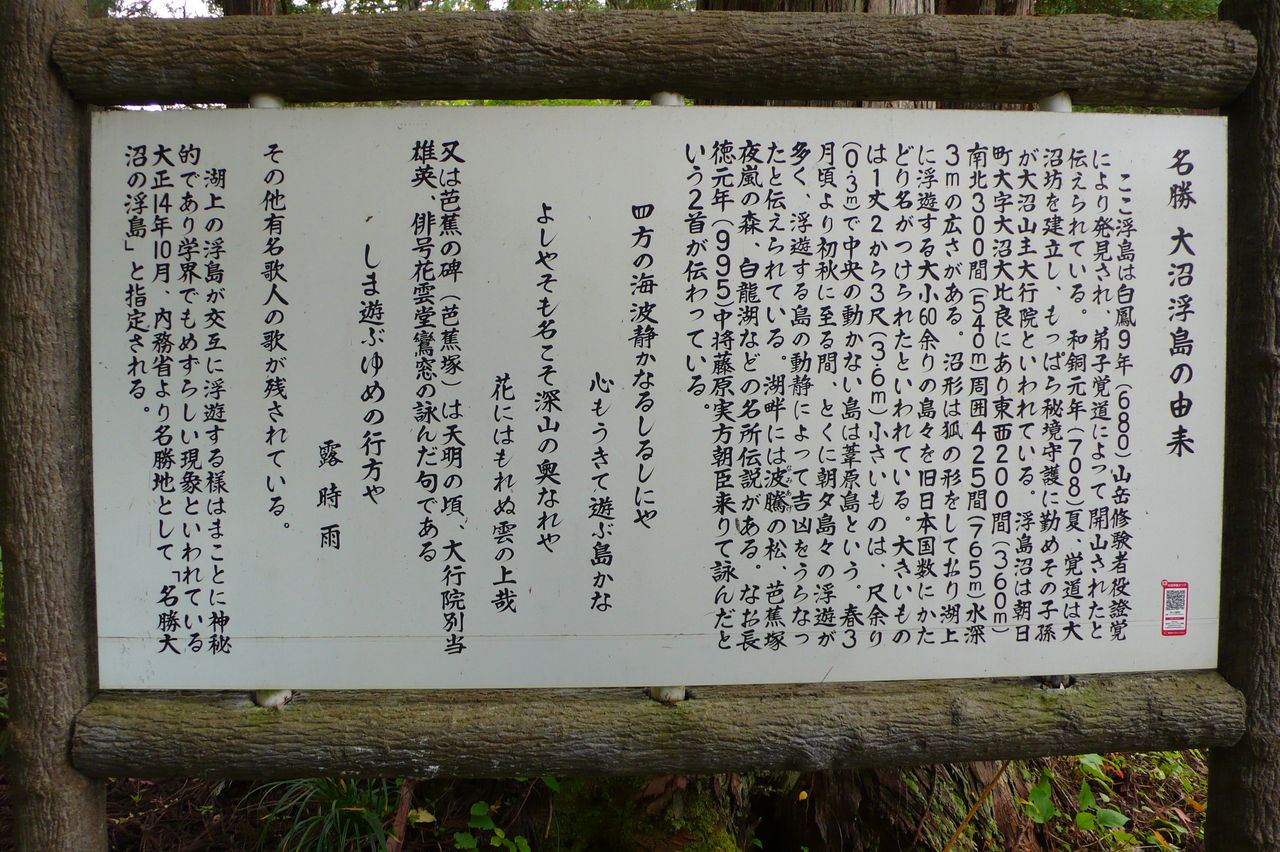 名勝 大沼浮島の由来
ここ浮島は白鳳9年(680)山岳修験者役證覚
により発見され、弟子覚道によって開山されたと
伝えられている。和銅元年(708)夏、覚道は大
沼坊を建立し、もっぱら秘境守護に勤めその子孫
が大沼山主大行院といわれている。浮島沼は朝日
町大字大沼大比良にあり東西200間(360m)
南北300間(540m)周囲425間(765m)水深
3mの広さがある。沼形は狐の形をしており湖上
に浮遊する大小60余りの島々を旧日本国数にかた
どり名がつけられたといわれている。大きいもの
は1丈2から3尺(3.6m)小さいものは、尺余り
(0.3m)で中央の動かない島は葦原島という。春3
月頃より初秋に至る間、とくに朝夕島々の浮遊が
多く、浮遊する島の動静によって吉凶をうらなっ
たと伝えられている。湖畔には波騰の松、芭蕉塚
夜嵐の森、白龍湖などの名所伝説がある。なお長
徳元年(995)中将藤原実方朝臣来りて詠んだと
いう2首が伝わっている。
四方の海波静かなるしるしにや
心もうきて遊ぶ島かな
よしやそも名こそ深山の奥なれや
花にはもれぬ雲の上哉
又は芭蕉の碑(芭蕉塚)は天明の頃、大行院別当
雄英、俳号花雲堂鶯窓の詠んだ句である
しま遊ぶゆめの行方や
露時雨
その他有名歌人の歌が残されている。
湖上の浮島が交互に浮遊する様はまことに神秘
的であり学界でもめずらしい現象といわれている
大正14年10月、内務省より名勝地として「名勝大
沼の浮島」と指定される。